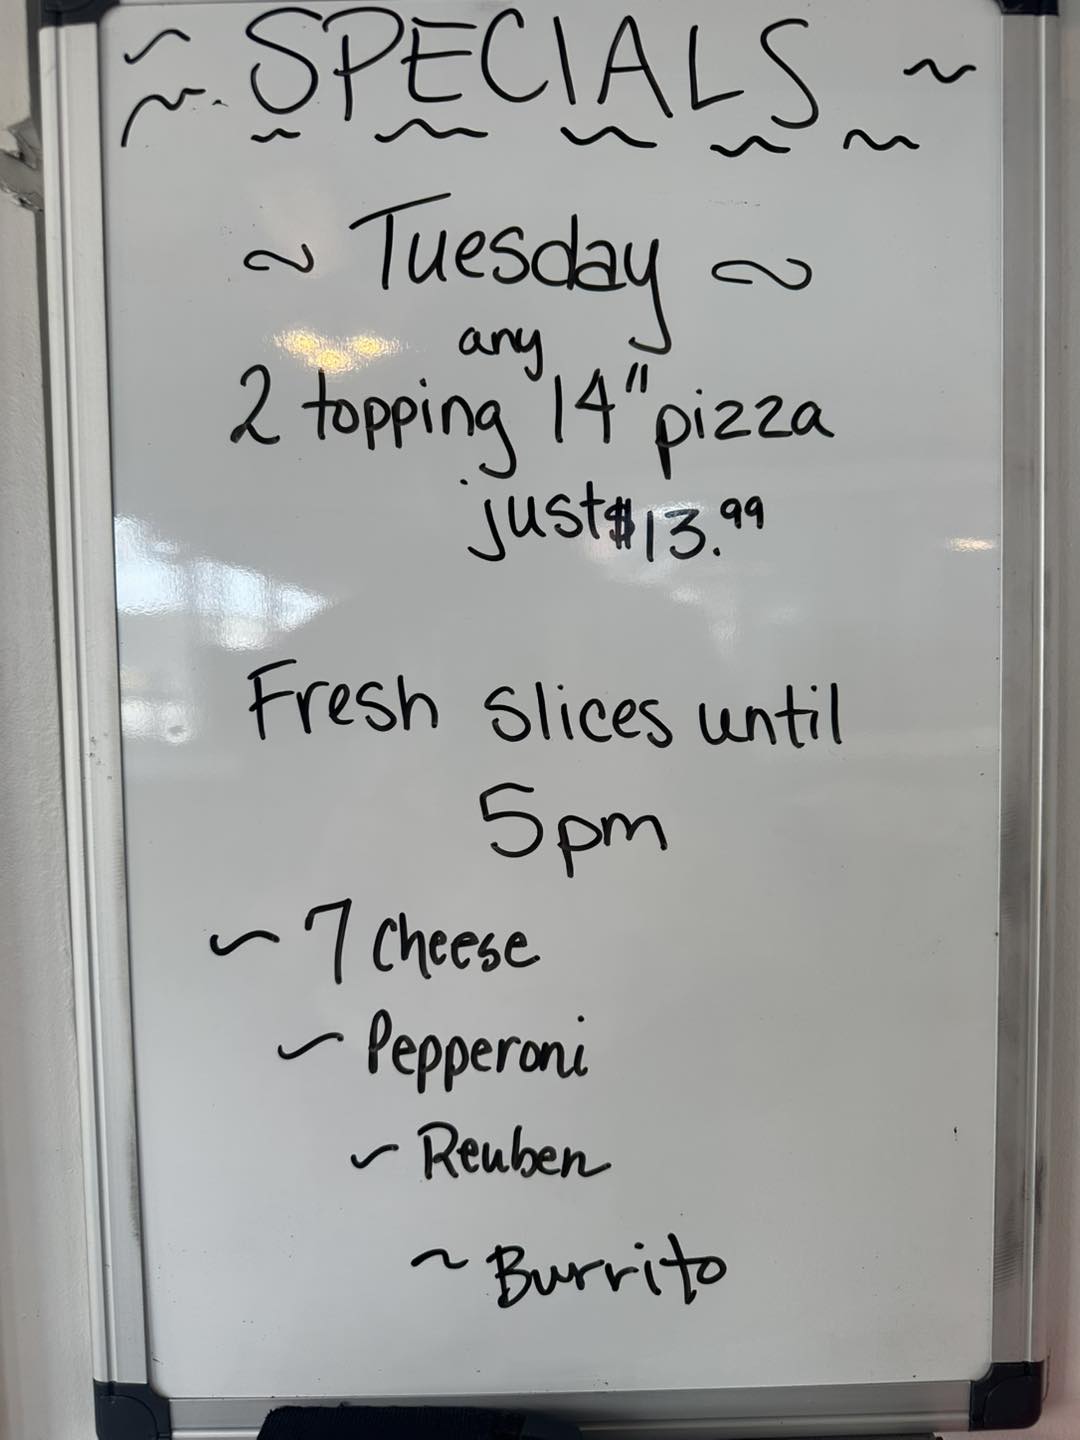 SPECIALS
~ Tuesday ~
any
2 topping 14" pizza
just $13.99
Fresh slices until
5pm
~ 7 Cheese
~ Pepperoni
~ Reuben
~ Burrito